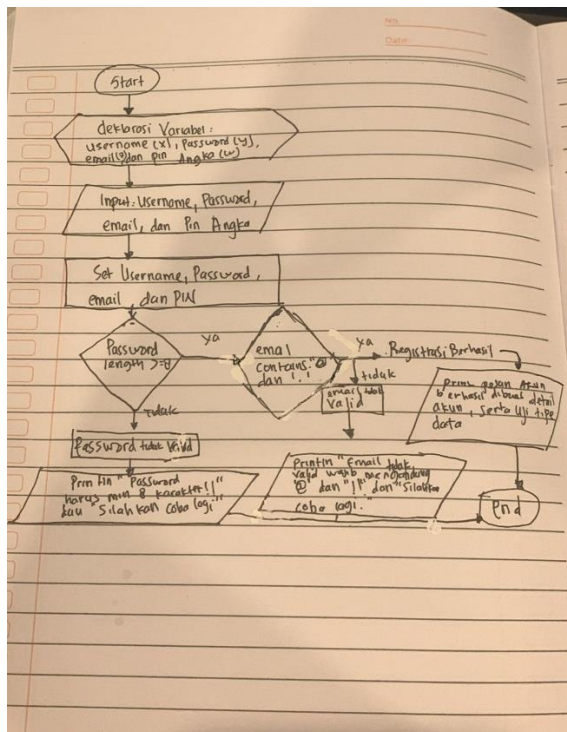 No.
Date:
Start
deklarasi Variabel:
Username (x), Password (y),
email(z) dan pin Angka (w)
Input: Username, Password,
email, dan Pin Angka
Set Username, Password,
email dan PIN
Password
length >=8
ya
email
contains "@
dan "."
ya
Registrasi Berhasil
tidak
email tidak
valid
print pesan Akun
berhasil dibuat detail
akun, serta uji tipe
data
tidak
Password tidak Valid
Println "Password
harus min 8 karakter!!"
lau "Silahkan coba lagi"
Println "Email tidak
valid wajib mengandung
@ dan "!" dan "Silahkan
coba lagi."
End